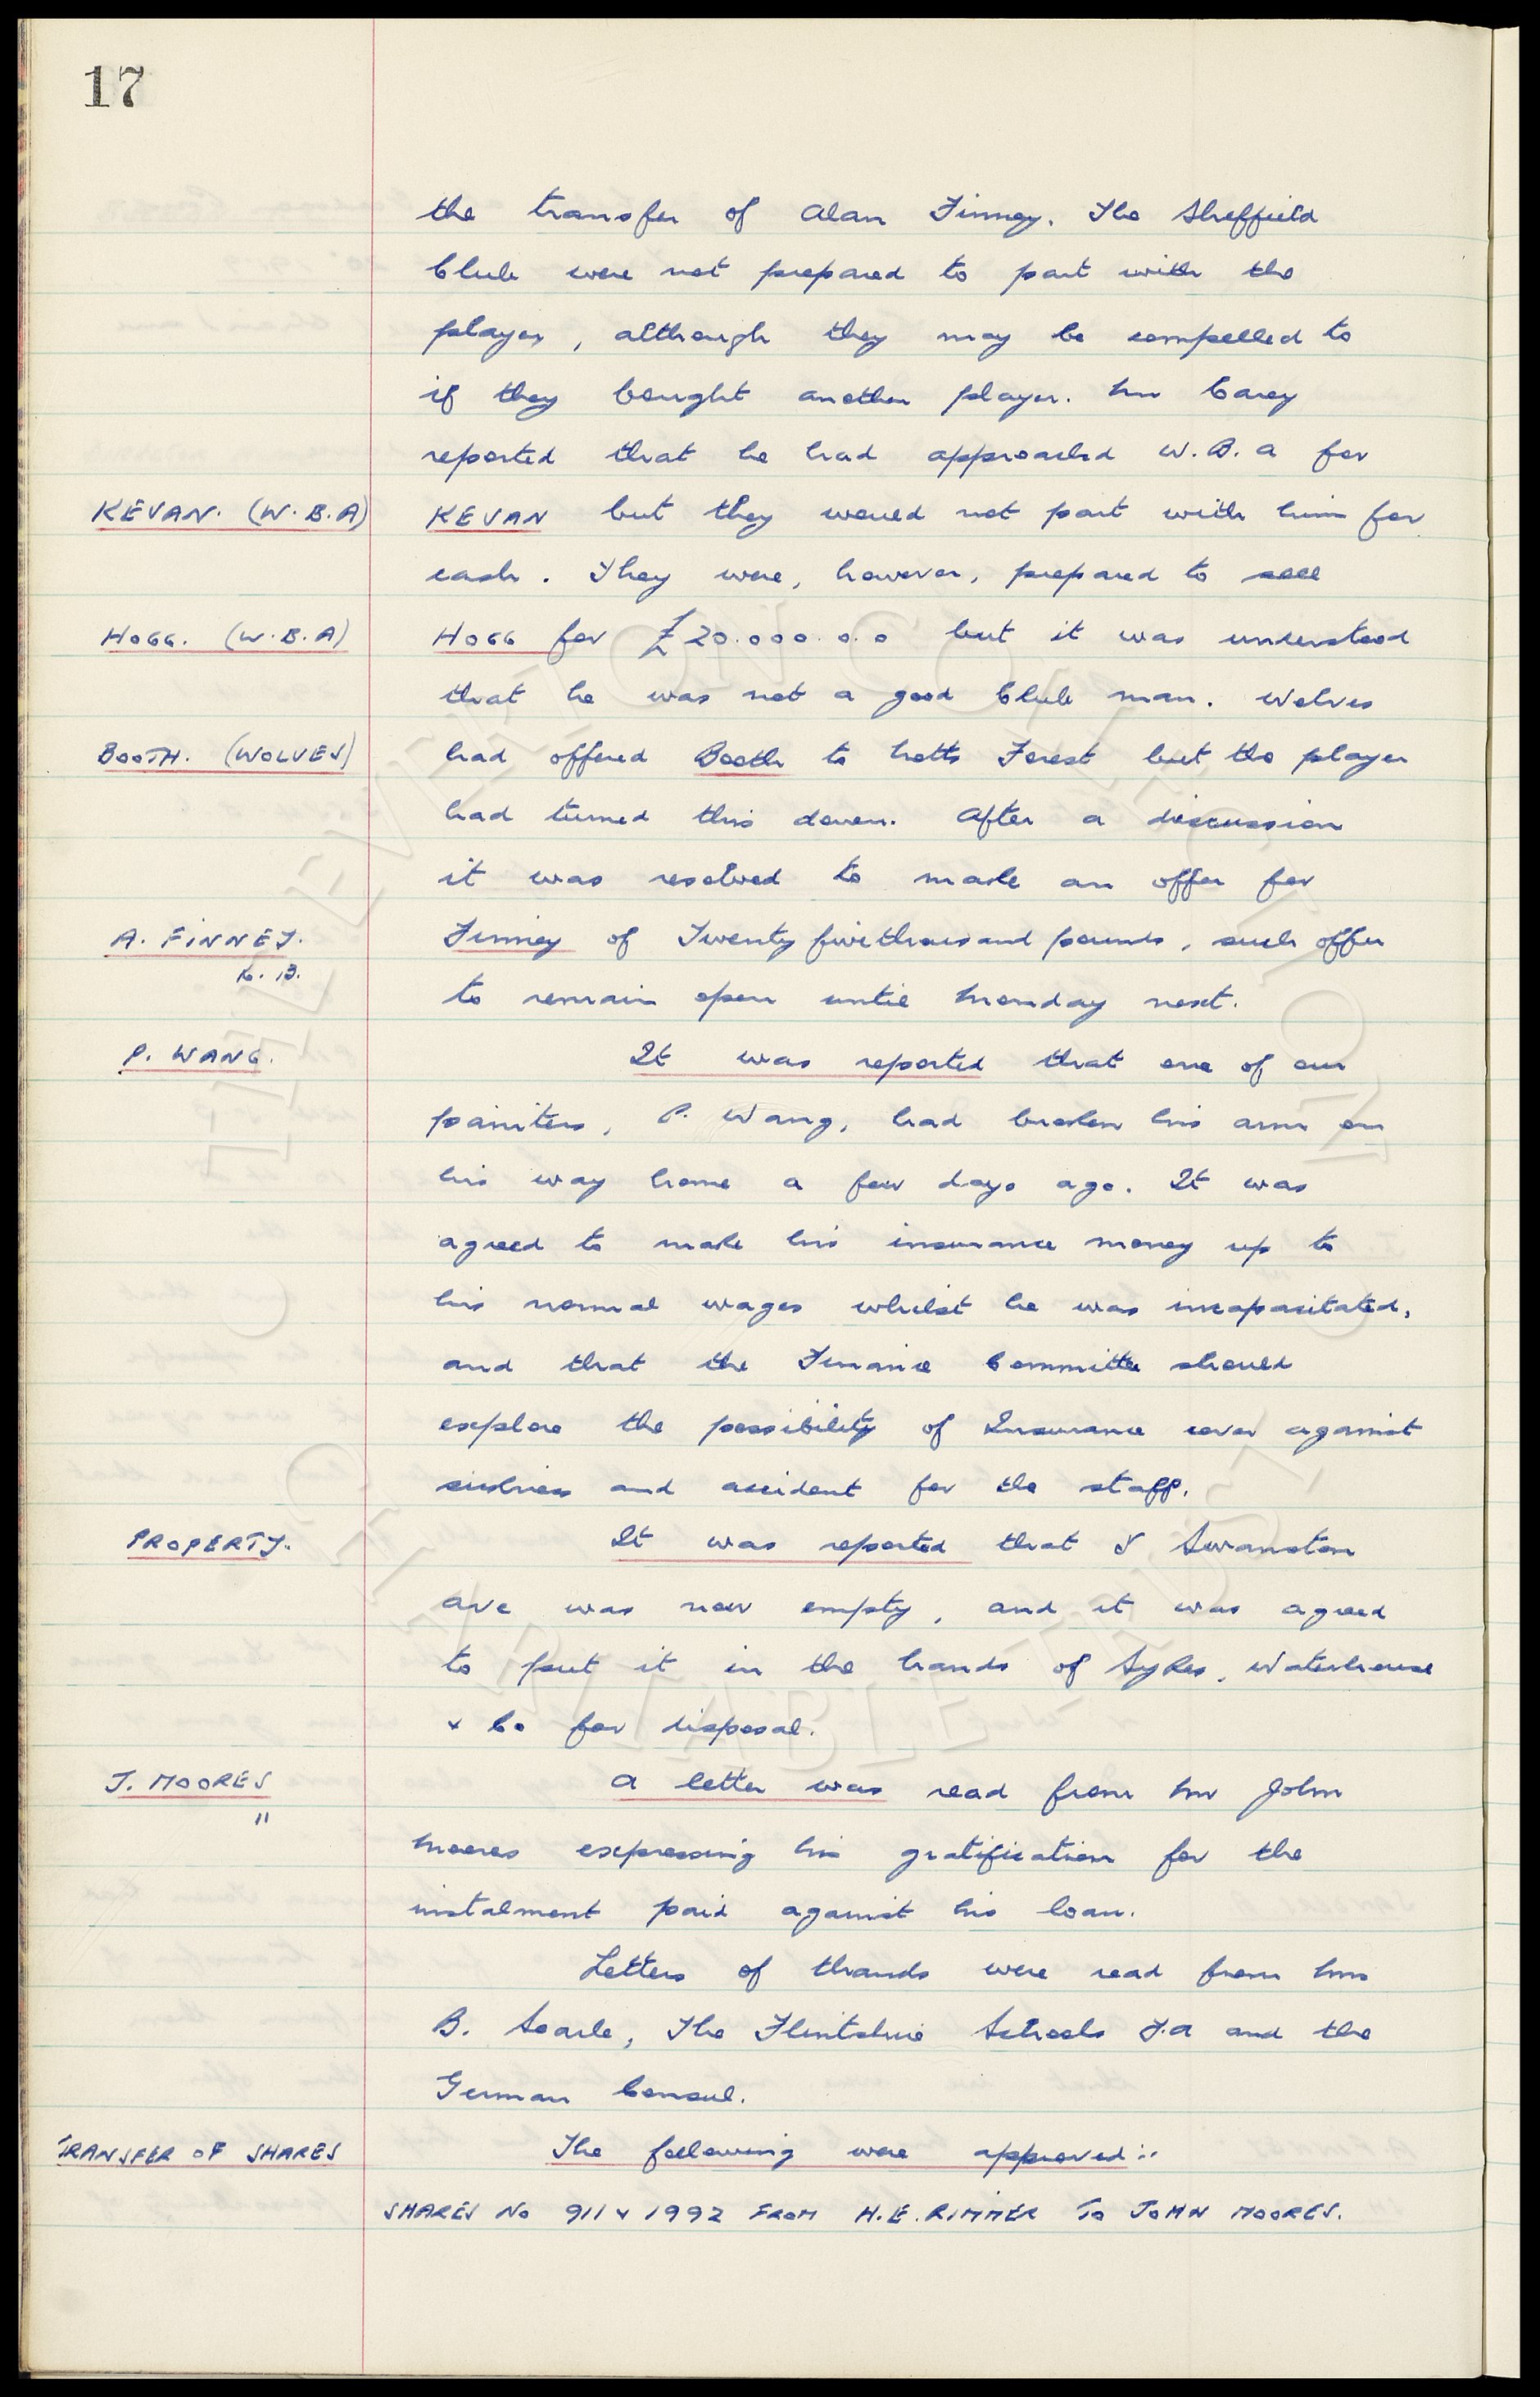 17
the transfer of Alan Finney. The Sheffield
Club were not prepared to part with the
player, although they may be compelled to
if they bought another player. Mr Carey
reported that he had approached W.B.A for
KEVAN. (W.B.A)
KEVAN but they would not part with him for
cash. They were, however, prepared to sell
HOGG. (W.B.A)
HOGG for £20.000.0.0 but it was understood
that he was not a good Club man. Wolves
BOOTH. (WOLVES)
had offered Booth to Notts Forest but the player
had turned this down. After a discussion
it was resolved to make an offer for
A. FINNEY.
Finney of Twenty five thousand pounds, such offer
to remain open until Monday next.
P. WANG.
It was reported that one of our
painters, P. Wang, had broken his arm on
his way home a few days ago. It was
agreed to make his insurance money up to
his normal wages whilst he was incapacitated,
and that the Finance Committee should
explore the possibility of Insurance cover against
sickness and accident for the staff.
PROPERTY.
It was reported that 8 Swanston
Ave was now empty, and it was agreed
to put it in the hands of Sykes, Waterhouse
& Co for disposal.
J. MOORES
"
A letter was read from Mr John
Moores expressing his gratification for the
instalment paid against his loan.
Letters of thanks were read from Mrs
B. Searle, The Flintshire Schools F.A and the
German Consul.
TRANSFER OF SHARES
The following were approved:-
SHARES No 911 & 1992 FROM H.E. RIMMER TO JOHN MOORES.